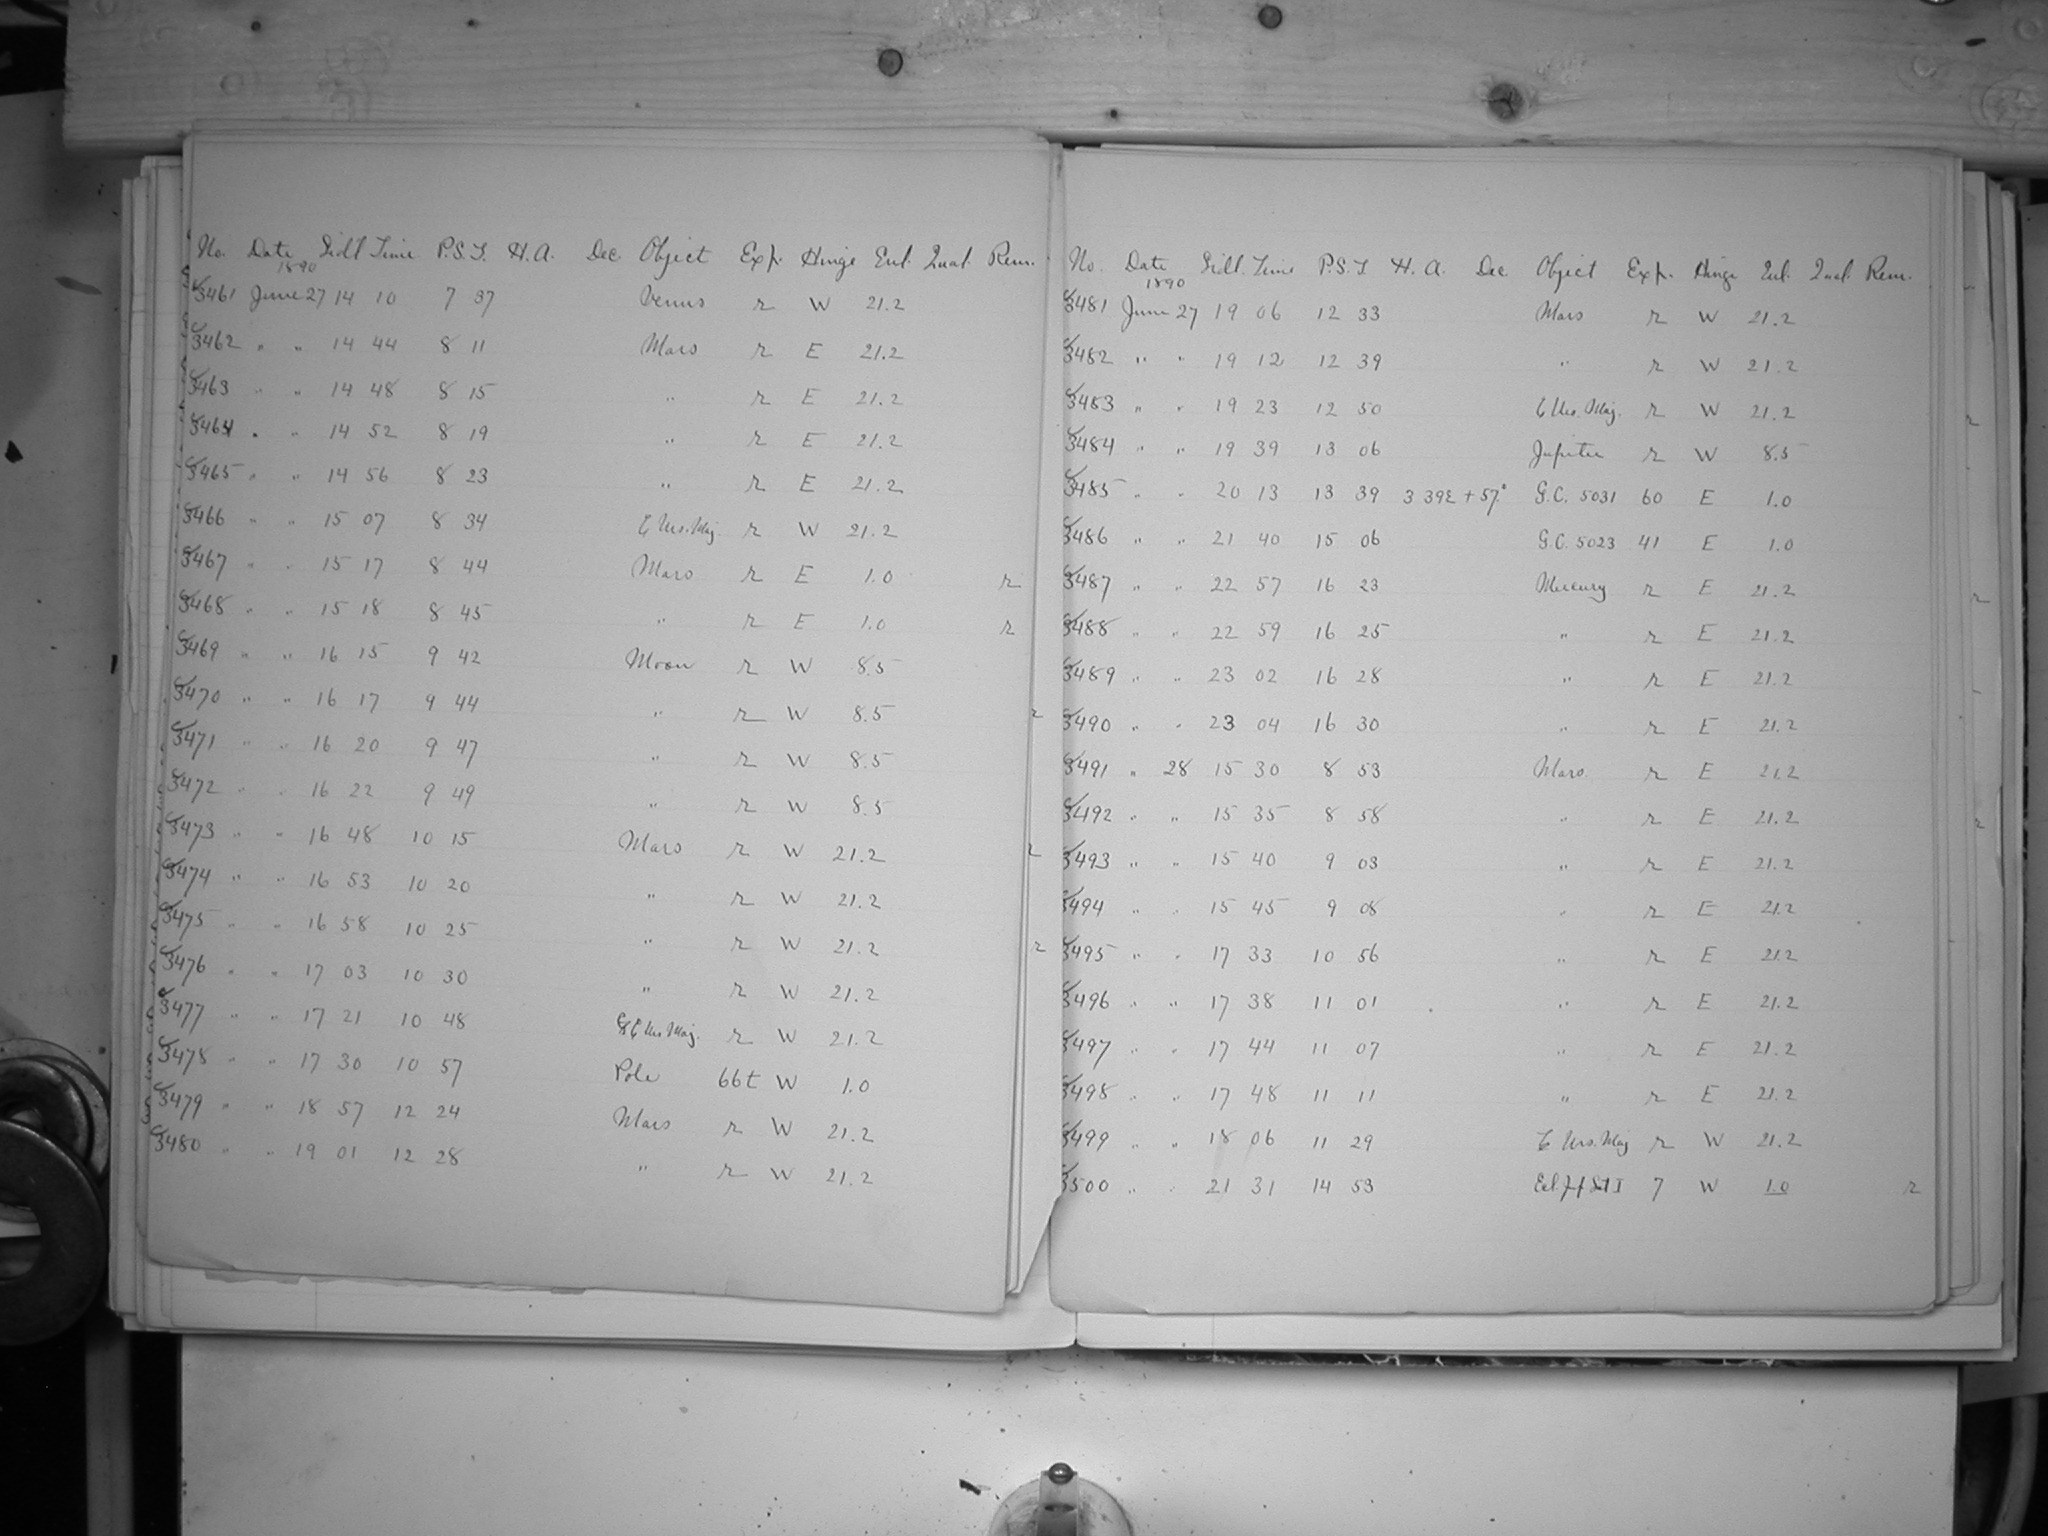 No. Date Sidl Time P.S.T. H.A. Dec. Object Exp. Hinge Enl. Qual. Rem.
1890
3461 June 27 14 10 7 37 Venus r W 21.2
3462 " " 14 44 8 11 Mars r E 21.2
3463 " " 14 48 8 15 " r E 21.2
3464 " " 14 52 8 19 " r E 21.2
3465 " " 14 56 8 23 " r E 21.2
3466 " " 15 07 8 34 ζ Urs. Maj. r W 21.2
3467 " " 15 17 8 44 Mars r E 1.0 r
3468 " " 15 18 8 45 " r E 1.0 r
3469 " " 16 15 9 42 Moon r W 8.5
3470 " " 16 17 9 44 " r W 8.5
3471 " " 16 20 9 47 " r W 8.5
3472 " " 16 22 9 49 " r W 8.5
3473 " " 16 48 10 15 Mars r W 21.2
3474 " " 16 53 10 20 " r W 21.2
3475 " " 16 58 10 25 " r W 21.2
3476 " " 17 03 10 30 " r W 21.2
3477 " " 17 21 10 48 ζ Urs. Maj. r W 21.2
3478 " " 17 30 10 57 Pole 66t W 1.0
3479 " " 18 57 12 24 Mars r W 21.2
3480 " " 19 01 12 28 " r W 21.2
No. Date Sidl. Time P.S.T H.A. Dec Object Exp. Hinge Enl. Qual Rem.
1890
3481 June 27 19 06 12 33 Mars r W 21.2
3482 " " 19 12 12 39 " r W 21.2
3483 " " 19 23 12 50 ζ Urs. Maj. r W 21.2
3484 " " 19 39 13 06 Jupiter r W 8.5
3485 " " 20 13 13 39 3 39E +57° G.C. 5031 60 E 1.0
3486 " " 21 40 15 06 G.C. 5023 41 E 1.0
3487 " " 22 57 16 23 Mercury r E 21.2
3488 " " 22 59 16 25 " r E 21.2
3489 " " 23 02 16 28 " r E 21.2
3490 " " 23 04 16 30 " r E 21.2
3491 " 28 15 30 8 53 Mars r E 21.2
3492 " " 15 35 8 58 " r E 21.2
3493 " " 15 40 9 03 " r E 21.2
3494 " " 15 45 9 08 " r E 21.2
3495 " " 17 33 10 56 " r E 21.2
3496 " " 17 38 11 01 " r E 21.2
3497 " " 17 44 11 07 " r E 21.2
3498 " " 17 48 11 11 " r E 21.2
3499 " " 18 06 11 29 ζ Urs. Maj r W 21.2
3500 " " 21 31 14 53 Ecl. Jup Sat I 7 W 1.0 r